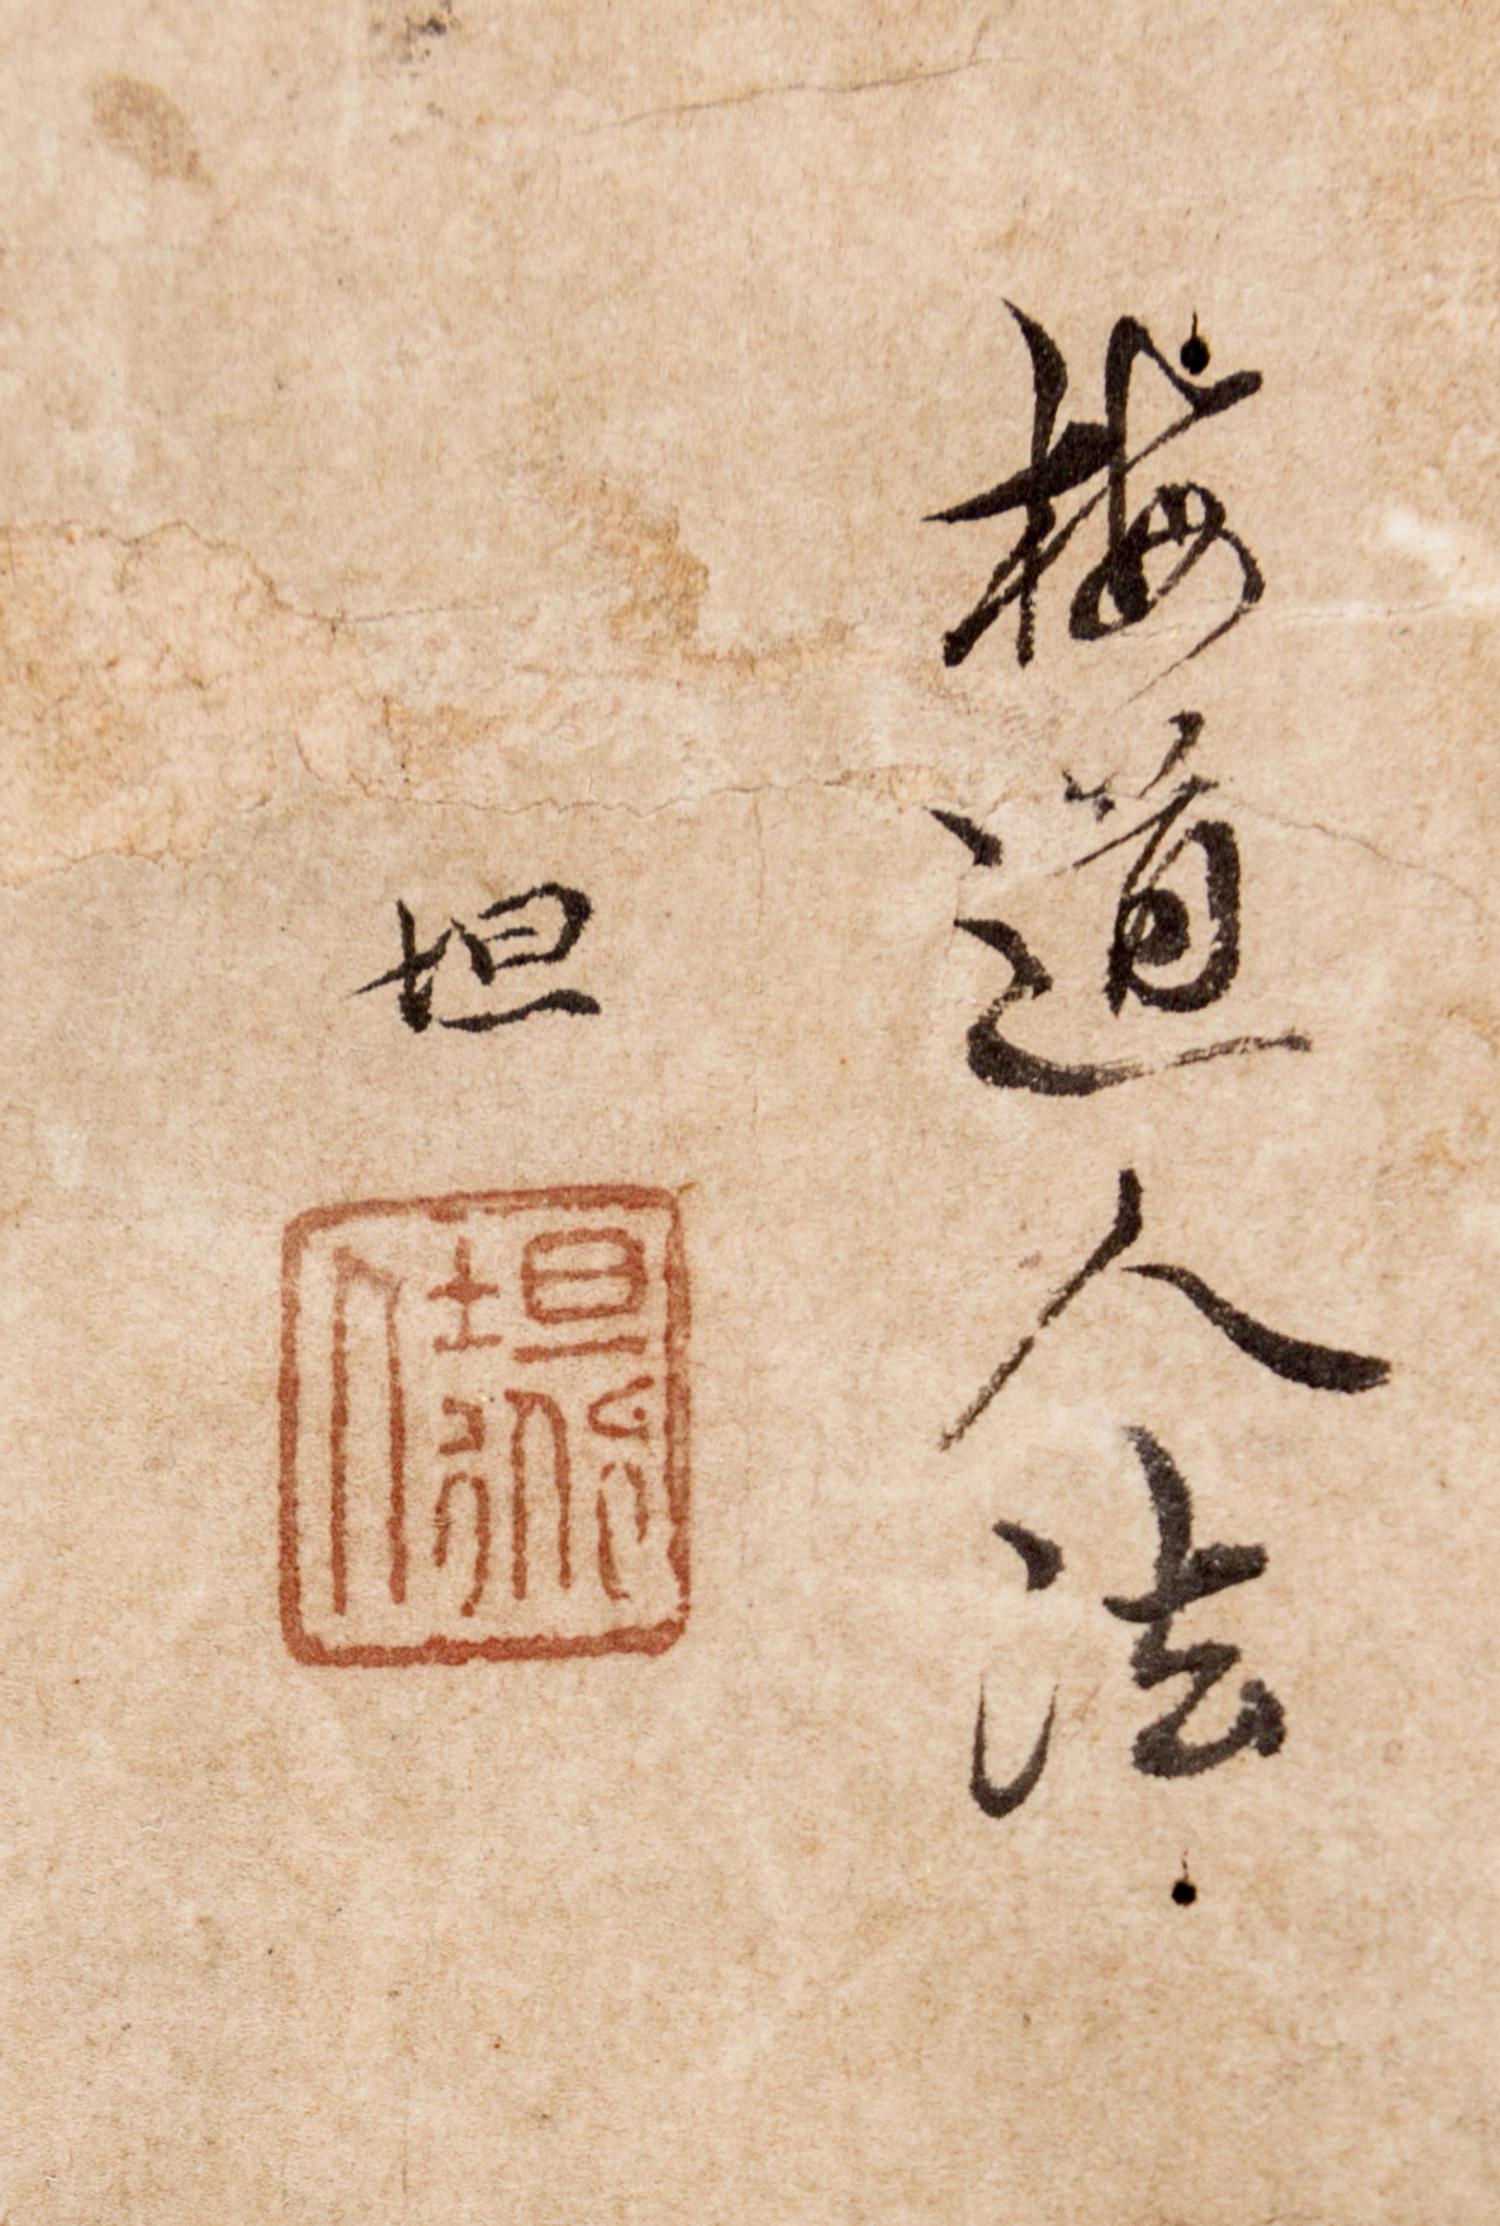 梅道人法
坦